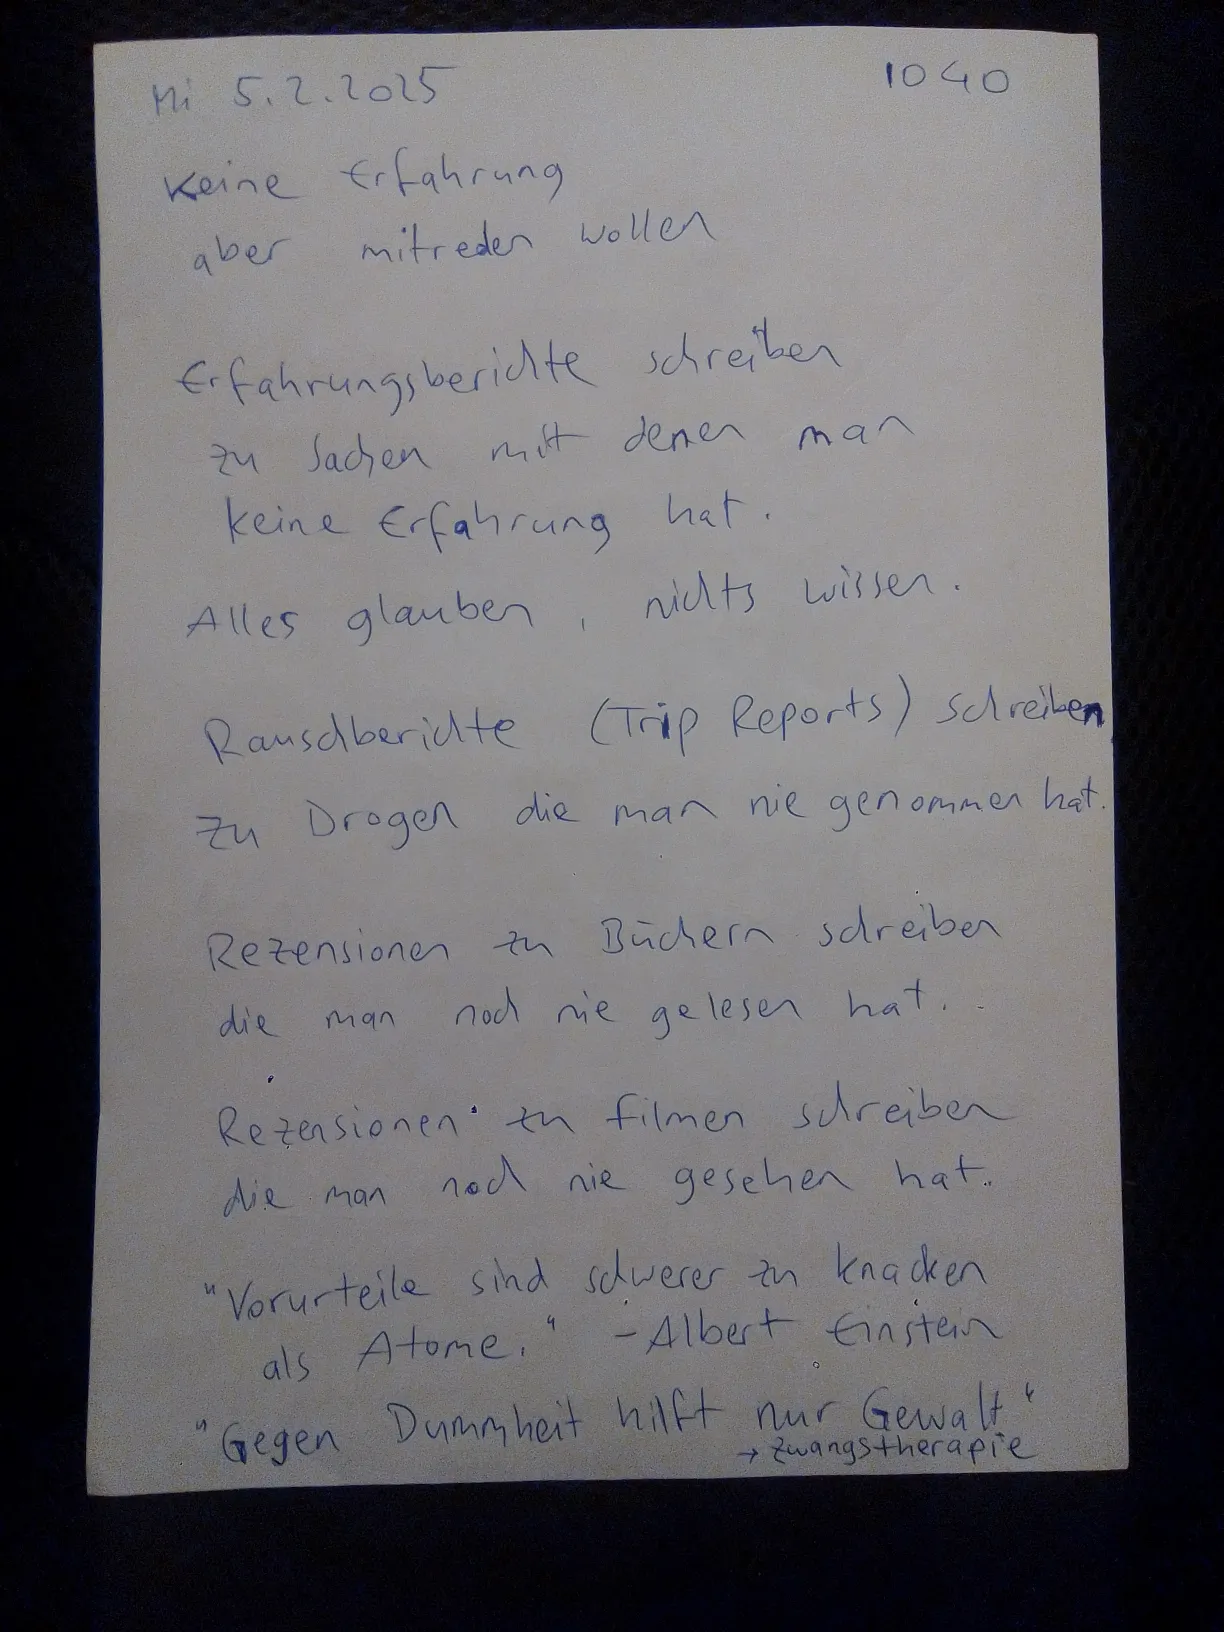 Mi 5.2.2025 1040
Keine Erfahrung
aber mitreden wollen
Erfahrungsberichte schreiben
zu Sachen mit denen man
keine Erfahrung hat.
Alles glauben, nichts wissen.
Rauschberichte (Trip Reports) schreiben
zu Drogen die man nie genommen hat.
Rezensionen zu Büchern schreiben
die man noch nie gelesen hat.
Rezensionen zu Filmen schreiben
die man noch nie gesehen hat.
"Vorurteile sind schwerer zu knacken
als Atome." - Albert Einstein
"Gegen Dummheit hilft nur Gewalt"
→ Zwangstherapie